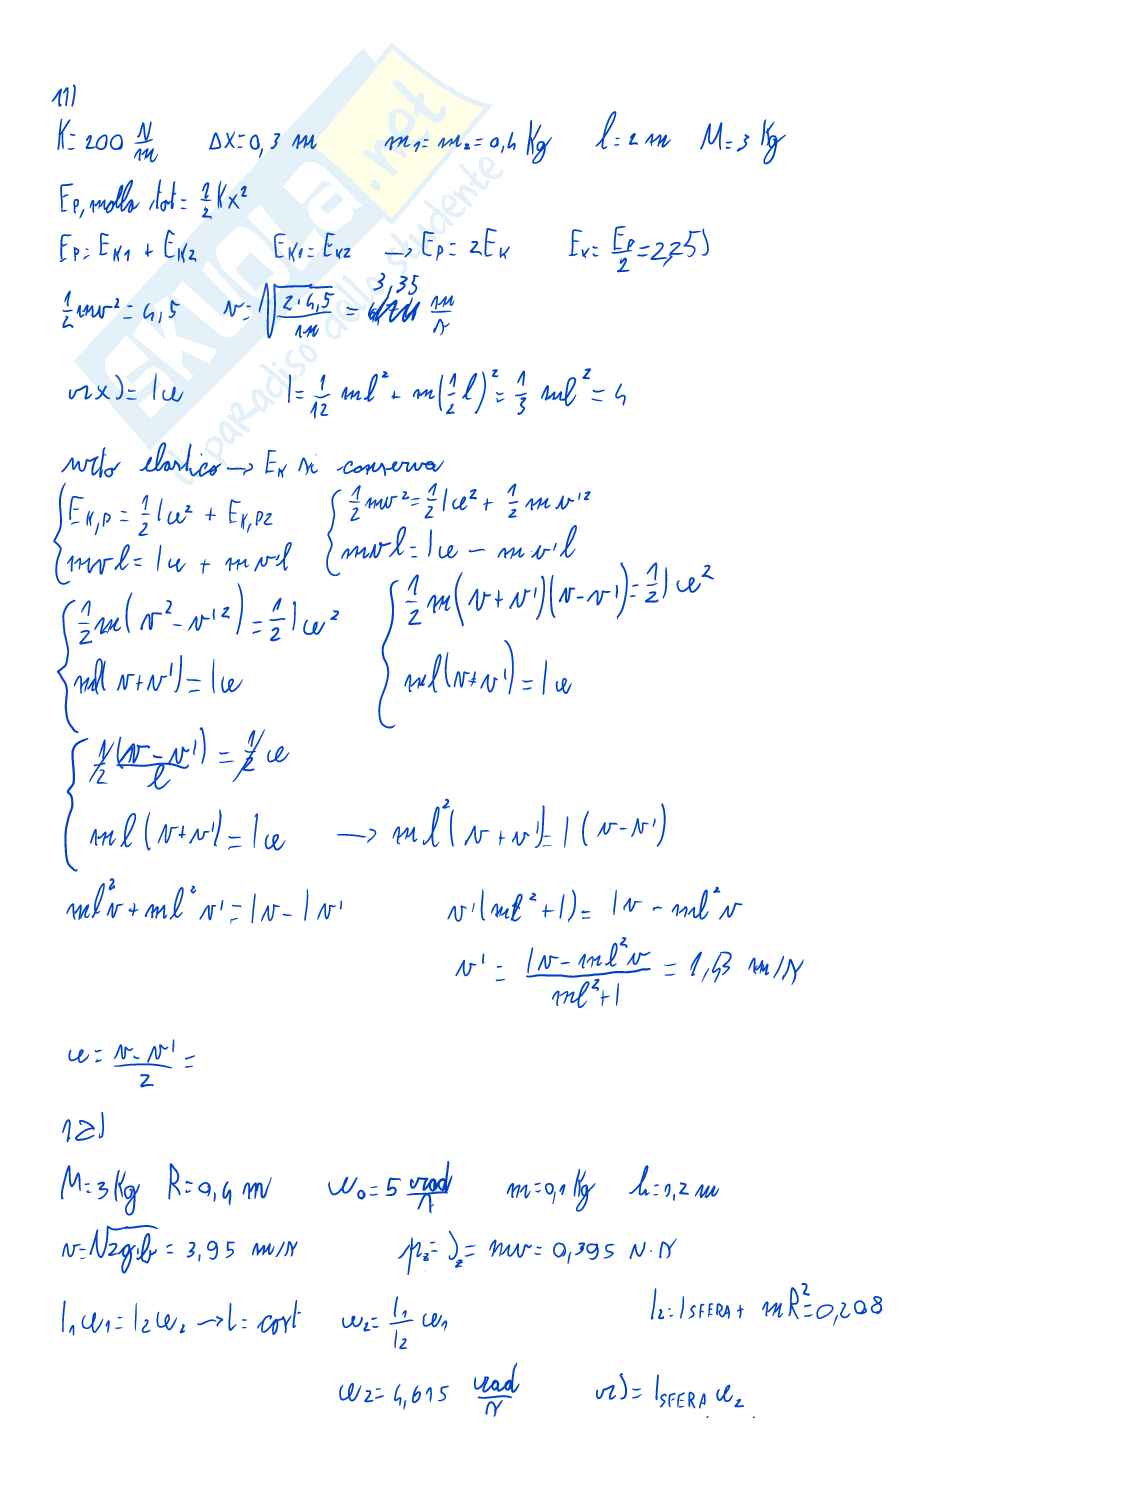 11)
K=200 N/m   Δx=0,3 m   m₁=m₂=0,4 Kg   l=2 m   M=3 Kg
E_P, molla tot = 1/2 Kx²
E_P = E_K1 + E_K2   E_K1=E_K2 → E_P=2E_K   E_K=E_P/2=2,25 J
1/2 mv²=4,5   v=√(2·4,5/m) = 3,35 m/s
= Iω   I=1/12 ml² + m(1/2 l)²=1/3 ml²=4
urto elastico → E_K si conserva
{E_K,P = 1/2 Iω² + E_K,P2   {1/2 mv²=1/2 Iω² + 1/2 m v'²
{mvl=Iω + mv'l   {mvl=Iω - mv'l
{1/2 m(v²-v'²)=1/2 Iω²   {1/2 m(v+v')(v-v')=1/2 Iω²
{ml(v+v')=Iω   {ml(v+v')=Iω
{1/2 (v-v')/l = 1/2 ω
{ml(v+v')=Iω → ml²(v+v')=I(v-v')
ml²v+ml²v'=Iv-Iv'   v'(ml²+I)=Iv-ml²v
v' = (Iv-ml²v)/(ml²+I) = 1,43 m/s
ω=(v-v')/2 =
12)
M=3 Kg   R=0,4 m   ω₀=5 rad/s   m=0,1 Kg   h=1,2 m
v=√2g·h = 3,95 m/s   p_z=J_z=mv=0,395 N·s
I₁ω₁=I₂ω₂ → L=cost   ω₂=I₁/I₂ ω₁   I₂=I_SFERA+ mR²=0,208
ω₂=4,615 rad/s   = I_SFERA ω₂
SKUOLA.net
il paradiso dello studente